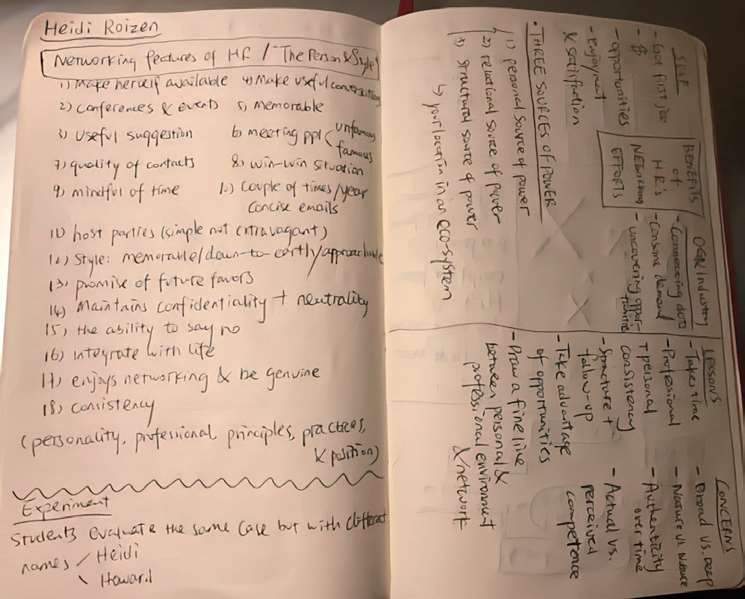 Heidi Roizen
Networking features of HR / The Person & Style
1) Make herself available 4) Make useful connections
2) conferences & events 5) Memorable
3) Useful suggestion 6) meeting ppl < unfamous famous
7) quality of contacts 8) win-win situation
9) mindful of time 10) couple of times/year
concise emails
11) host parties (simple not extravagant)
12) Style: memorable/down-to-earth/approachable
13) promise of future favors
14) Maintains confidentiality + neutrality
15) the ability to say no
16) Integrate with life
17) enjoys networking & be genuine
18) consistency
(personality, professional principles, practices,
& position)
Experiment
Students evaluate the same case but with different
names / Heidi
\ Howard
SELF
- Got first job
- $
- opportunities
- enjoyment
& satisfaction
BENEFITS
of
HR's
NETWORKING
EFFORTS
Industry
- Connecting dots
- Consume demand
- uncovering oppor-
tunities
• THREE SOURCES OF POWER
1) personal source of power
2) relational source of power
3) structural source of power
↳ your location in an eco-system
LESSONS
- Takes time
- Professional
+ personal
consistency
- Structure +
follow-up
- Take advantage
of opportunities
- Draw a fine line
between personal &
professional environment
& network
CONCERNS
- Broad vs. Deep
- Nature vs. Nurture
- Authenticity
over time
- Actual vs.
perceived
competence